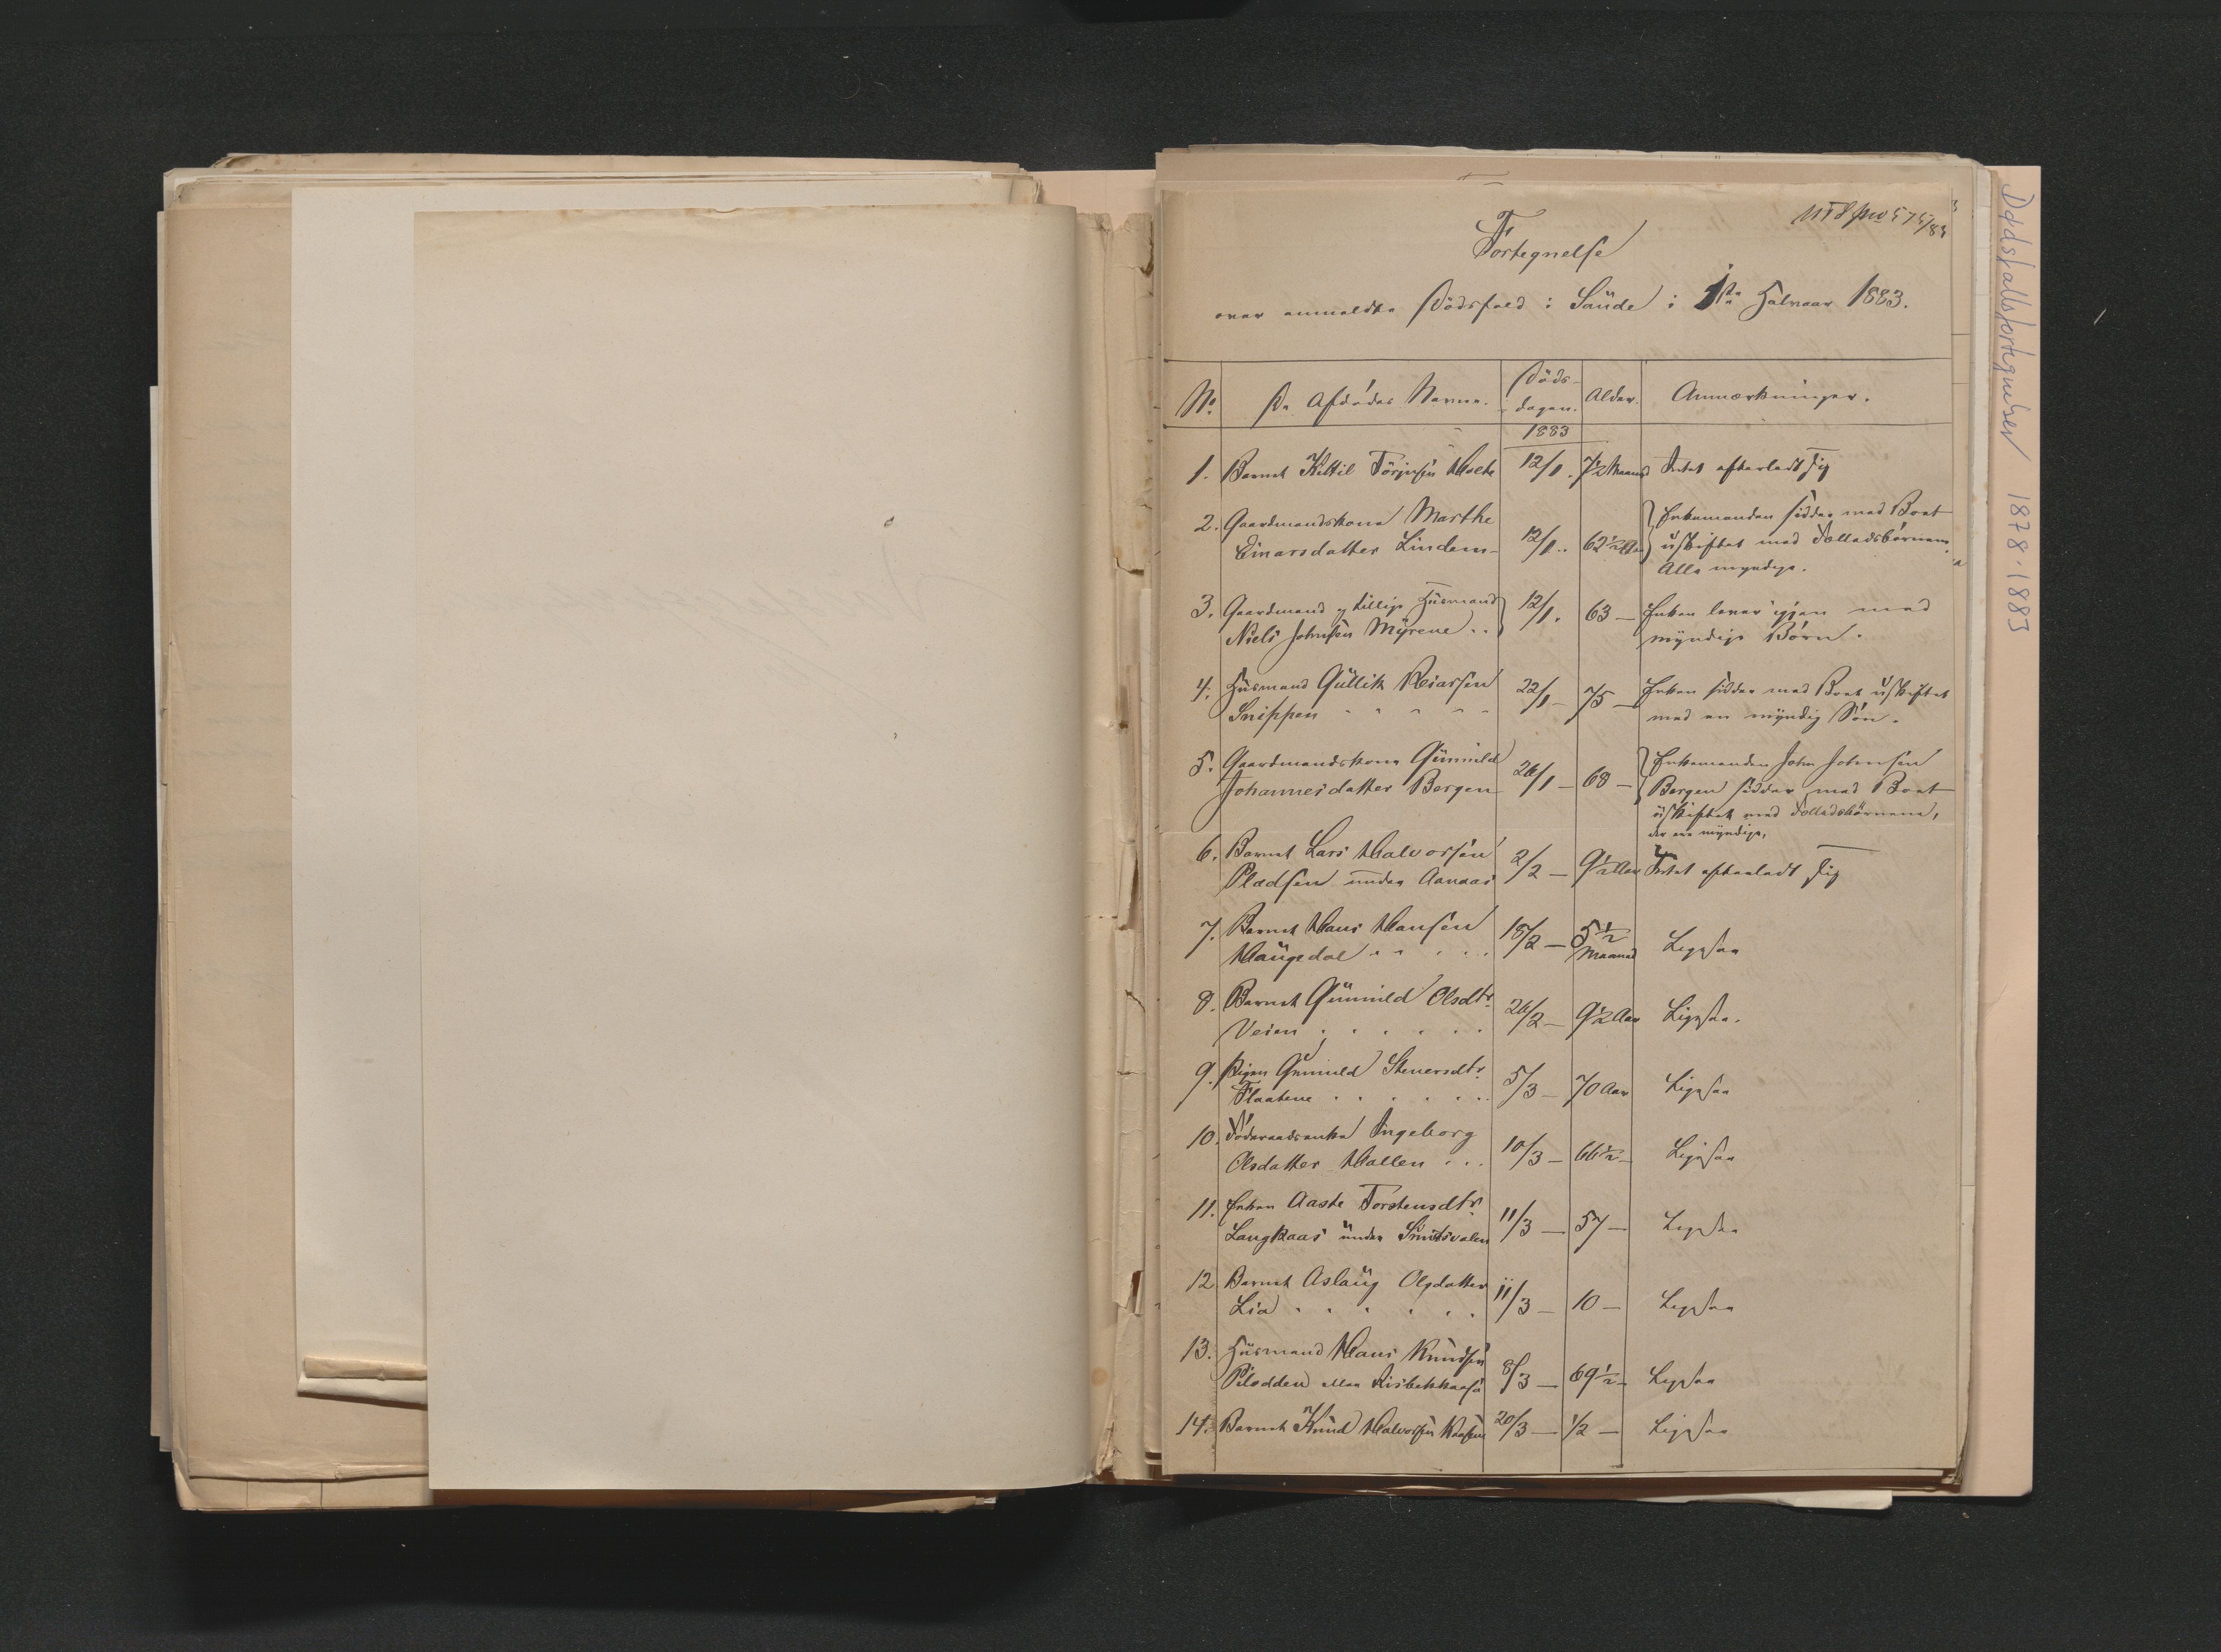 Fortegnelse
over anmeldte Dödsfald i Saude i 1ste Halvaar 1883.
No. De Afdödes Navne. Döds-dagen. Alder. Anmærkninger.
1883
1. Barnet Kittil Törjusen Holte 12/1. 7½ Maaned Intet efterladt sig
2. Gaardmandskone Marthe
Einarsdatter Lindem 12/1. 62½ Aar
Enkemanden sidder med Boet
uskiftet med Fælledsbörnene.
Alle myndige.
3. Gaardmand og tillige Husmand
Niels Johnsen Myrene 12/1. 63 —
Enken lever igjen med
myndige Börn.
4. Husmand Gullik Reiarsen
Snippen 22/1 — 75 —
Enken sidder med Boet uskiftet
med en myndig Sön.
5. Gaardmandskone Gunnild
Johannesdatter Bergen 26/1 — 68 —
Enkemanden John Johnsen
Bergen sidder med Boet
uskiftet med Fælledsbörnene,
der ere myndige.
6. Barnet Lars Halvorsen
Pladsen under Aanaas 2/2 — 9½ Aar Intet efterladt sig
7. Barnet Hans Hansen
Haugedal 18/2 — 5½ Maaned Ligesaa
8. Barnet Gunnild Olsdtr.
Veien 26/2 — 9½ Aar Ligesaa.
9. Pigen Gunnild Steversdtr.
Flaatene 5/3 — 70 Aar Ligesaa
10. Föderaadsenke Ingeborg
Olsdatter Hallen 10/3 — 66½ — Ligesaa
11. Enken Aaste Torstensdtr.
Langkaas under 11/3 — 57 — Ligesaa
12. Barnet Aslaug Olsdatter
Lia 11/3 — 10 — Ligesaa
13. Husmand Hans Knudsen
Pilodden eller 8/3 — 69½ — Ligesaa
14. Barnet Knud Halvorsen Kaasene 20/3 — ½ — Ligesaa
Dødsfallsfortegnelser 1878-1883